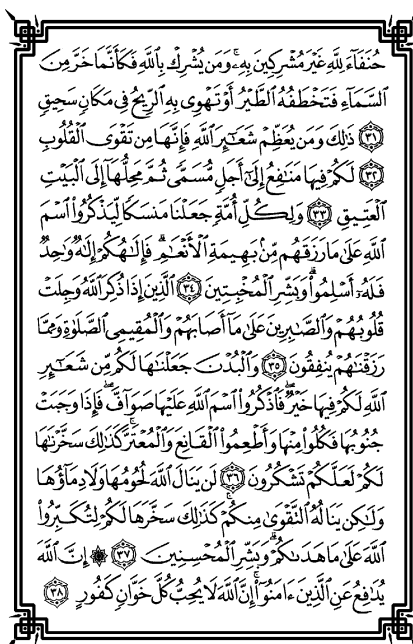 حُنَفَآءَ لِلَّهِ غَيْرَ مُشْرِكِينَ بِهِۦۚ وَمَن يُشْرِكْ بِٱللَّهِ فَكَأَنَّمَا خَرَّ مِنَ
ٱلسَّمَآءِ فَتَخْطَفُهُ ٱلطَّيْرُ أَوْ تَهْوِى بِهِ ٱلرِّيحُ فِى مَكَانٍ سَحِيقٍ
٣١ ذَٰلِكَ وَمَن يُعَظِّمْ شَعَٰٓئِرَ ٱللَّهِ فَإِنَّهَا مِن تَقْوَى ٱلْقُلُوبِ
٣٢ لَكُمْ فِيهَا مَنَٰفِعُ إِلَىٰٓ أَجَلٍ مُّسَمًّى ثُمَّ مَحِلُّهَآ إِلَى ٱلْبَيْتِ
ٱلْعَتِيقِ ٣٣ وَلِكُلِّ أُمَّةٍ جَعَلْنَا مَنسَكًا لِّيَذْكُرُوا۟ ٱسْمَ
ٱللَّهِ عَلَىٰ مَا رَزَقَهُم مِّنۢ بَهِيمَةِ ٱلْأَنْعَٰمِۗ فَإِلَٰهُكُمْ إِلَٰهٌ وَٰحِدٌ
فَلَهُۥٓ أَسْلِمُوا۟ۗ وَبَشِّرِ ٱلْمُخْبِتِينَ ٣٤ ٱلَّذِينَ إِذَا ذُكِرَ ٱللَّهُ وَجِلَتْ
قُلُوبُهُمْ وَٱلصَّٰبِرِينَ عَلَىٰ مَآ أَصَابَهُمْ وَٱلْمُقِيمِى ٱلصَّلَوٰةِ وَمِمَّا
رَزَقْنَٰهُمْ يُنفِقُونَ ٣٥ وَٱلْبُدْنَ جَعَلْنَٰهَا لَكُم مِّن شَعَٰٓئِرِ
ٱللَّهِ لَكُمْ فِيهَا خَيْرٌۖ فَٱذْكُرُوا۟ ٱسْمَ ٱللَّهِ عَلَيْهَا صَوَآفَّۖ فَإِذَا وَجَبَتْ
جُنُوبُهَا فَكُلُوا۟ مِنْهَا وَأَطْعِمُوا۟ ٱلْقَانِعَ وَٱلْمُعْتَرَّۚ كَذَٰلِكَ سَخَّرْنَٰهَا
لَكُمْ لَعَلَّكُمْ تَشْكُرُونَ ٣٦ لَن يَنَالَ ٱللَّهَ لُحُومُهَا وَلَا دِمَآؤُهَا
وَلَٰكِن يَنَالُهُ ٱلتَّقْوَىٰ مِنكُمْۚ كَذَٰلِكَ سَخَّرَهَا لَكُمْ لِتُكَبِّرُوا۟
ٱللَّهَ عَلَىٰ مَا هَدَىٰكُمْۗ وَبَشِّرِ ٱلْمُحْسِنِينَ ٣٧ ۞ إِنَّ ٱللَّهَ
يُدَٰفِعُ عَنِ ٱلَّذِينَ ءَامَنُوٓا۟ۗ إِنَّ ٱللَّهَ لَا يُحِبُّ كُلَّ خَوَّانٍ كَفُورٍ ٣٨